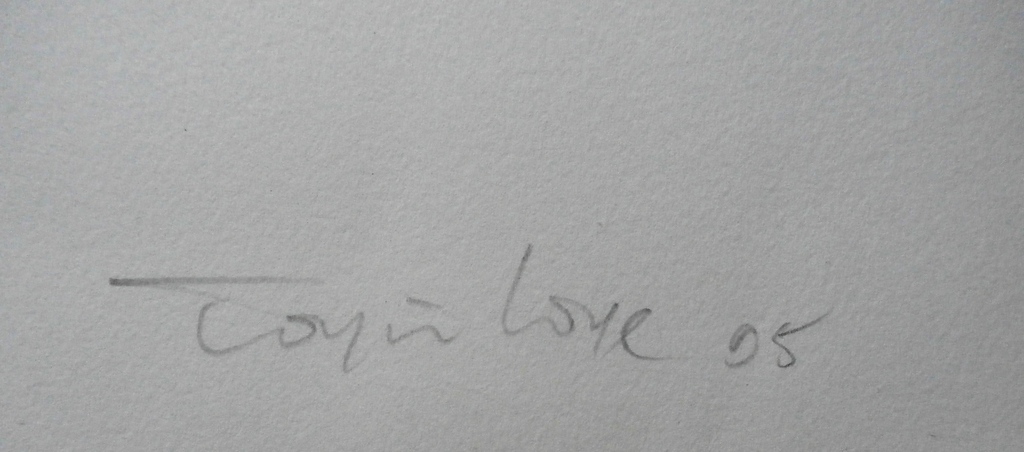 Toyin Loye 05